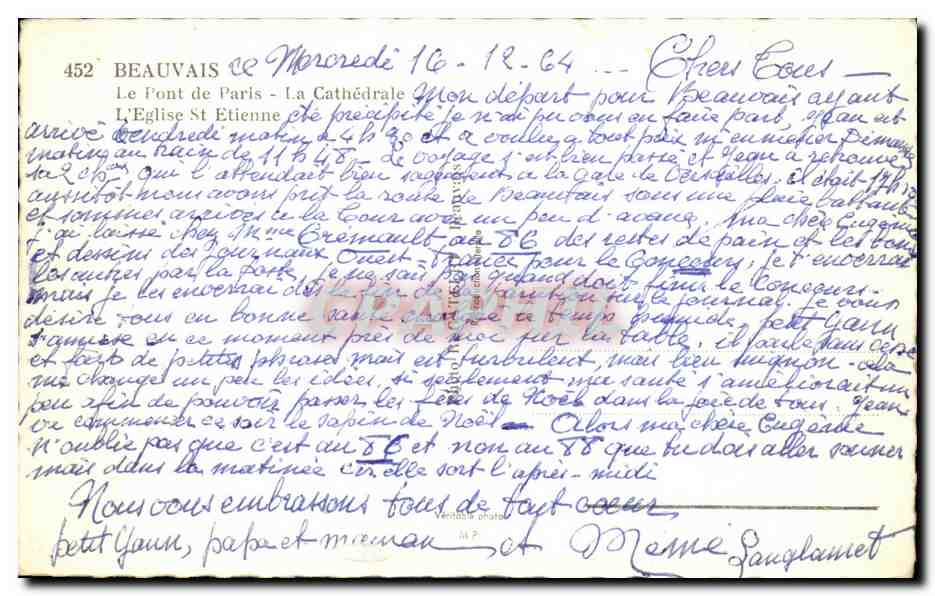 452 BEAUVAIS ce Mercredi 16 - 12 - 64 ... Chers Tous —
Le Pont de Paris - La Cathédrale Mon départ pour Beauvais ayant
L'Eglise St Etienne été précipité je n'ai pu vous en faire part, Jean est
arrivé vendredi matin à 4h30 et a voulu à tout prix m'emmener Dimanche
matin au train de 11h48. Le voyage s'est bien passé et Jean a retrouvé
sa 2 qui l'attendait bien sagement à la gare de Versailles. il était 17h
aussitôt nous avons pris la route de Beauvais sous une pluie battante
et sommes arrivés à la Tour avec un peu d'avance. Ma chère Eugénie
j'ai laissé chez Mme Trémault au 86 des restes de pain et les bons
et dessins des journaux Ouest-France pour le Concours, je t'enverrai
les autres par la poste, je ne sais pas quand doit finir le Concours -
mais je les enverrai sur le journal. Je vous
désire tous en bonne santé malgré ce temps humide. petit Yann
s'amuse en ce moment près de moi sur la table, il parle sans cesse
et fait de petites phrases mais est turbulent, mais bien mignon - cela
me change un peu les idées, si seulement ma santé s'améliorait un
peu afin de pouvoir passer les fêtes de Noël dans la joie de tous. Jean
va commencer ce soir le sapin de Noël — Alors ma chère Eugénie
n'oublie pas que c'est au 86 et non au 88 que tu dois aller sonner
mais dans la matinée car elle sort l'après-midi
Nous vous embrassons tous de tout coeur
Véritable photo
M P
petit Yann, papa et maman et Mémé Langlamet
GRAPHIKE